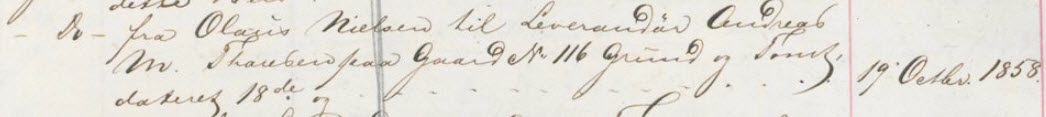 - Do - fra Olaus Nielsen til Leverandør Andreas
M. Thaulsen paa Gaard No 116 Grund og Tomt,
dateret 18de og - - - - - - - - 19 Octbr. 1858.